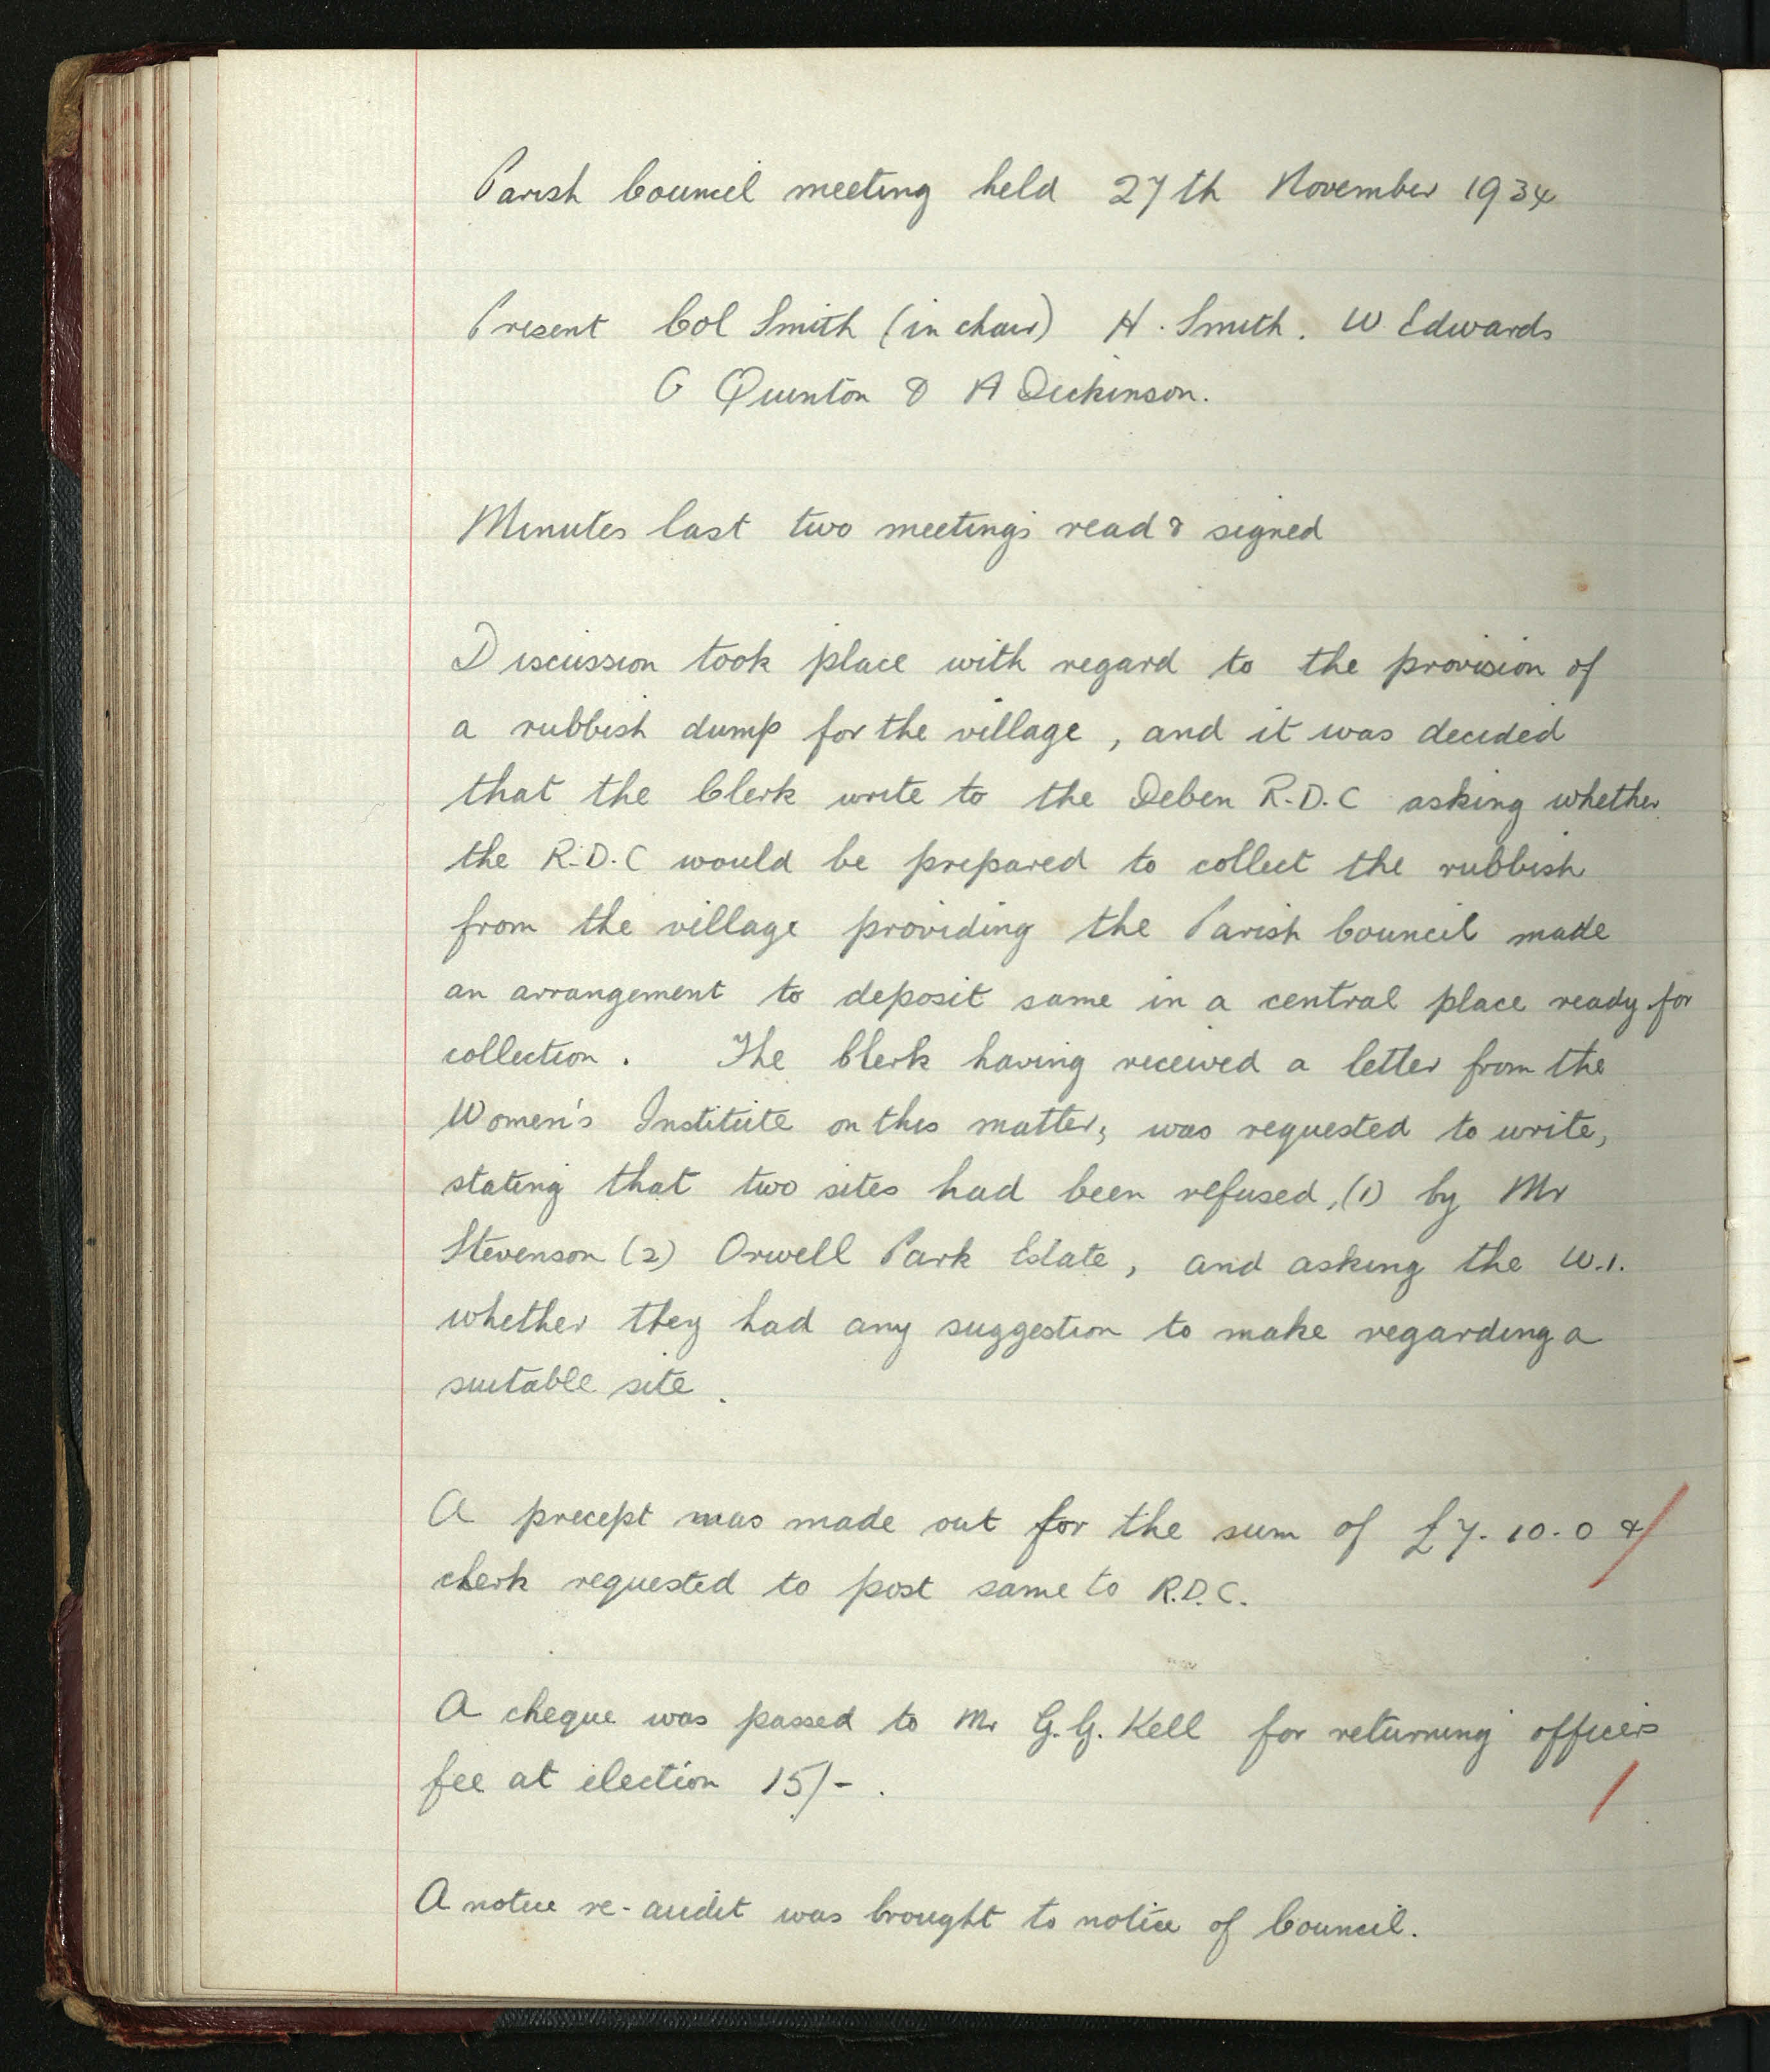 Parish Council meeting held 27th November 1934
Present Col Smith (in chair) H. Smith. W Edwards
G Quinton & A Dickinson.
Minutes last two meetings read & signed
Discussion took place with regard to the provision of
a rubbish dump for the village, and it was decided
that the Clerk write to the Deben R.D.C asking whether
the R.D.C would be prepared to collect the rubbish
from the village providing the Parish Council made
an arrangement to deposit same in a central place ready for
collection. The Clerk having received a letter from the
Women's Institute on this matter, was requested to write,
stating that two sites had been refused, (1) by Mr
Stevenson (2) Orwell Park Estate, and asking the W.I.
whether they had any suggestion to make regarding a
suitable site.
A precept was made out for the sum of £7.10.0 &
clerk requested to post same to R.D.C.
A cheque was passed to Mr G.G. Kell for returning officers
fee at election 15/-.
A notice re-audit was brought to notice of Council.